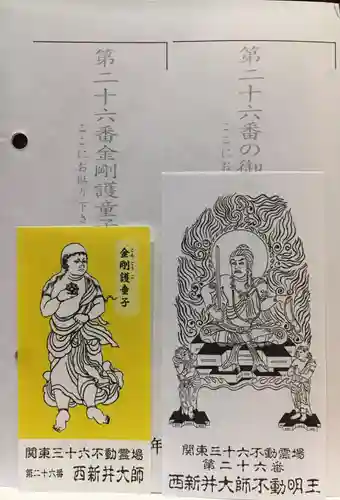 第二十六番の御
ここにお
第二十六番金剛護童子
ここにお貼り下さ
金剛護童子
こんごうごどうじ
関東三十六不動霊場
第二十六番 西新井大師
関東三十六不動霊場
第二十六番
西新井大師不動明王
年